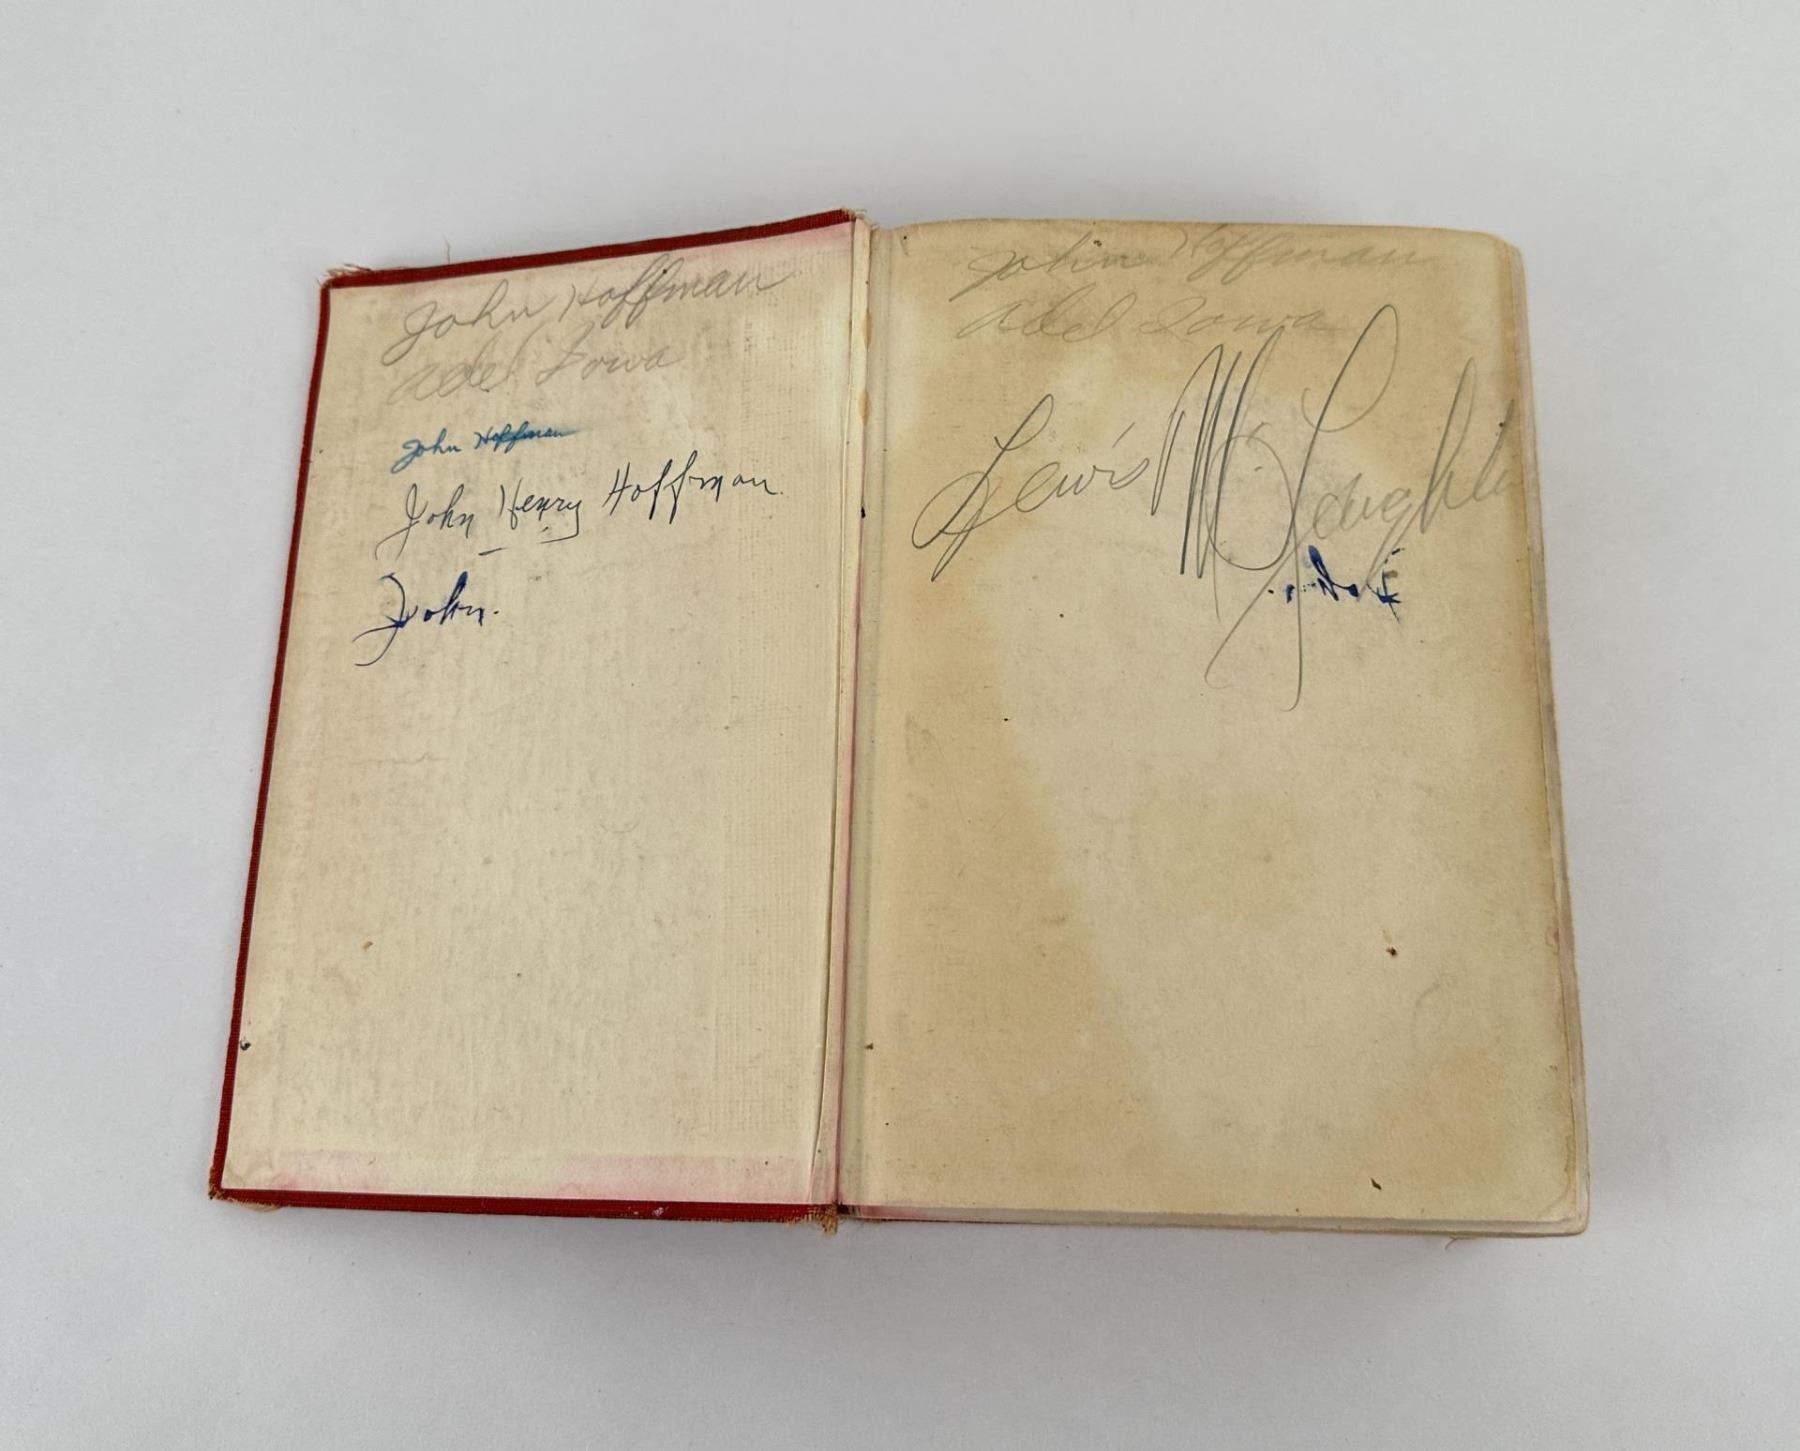 John Hoffman
Adel Iowa
John Hoffman
John Henry Hoffman.
John.
John Hoffman
Adel Iowa
Lewis Mc Laughlin